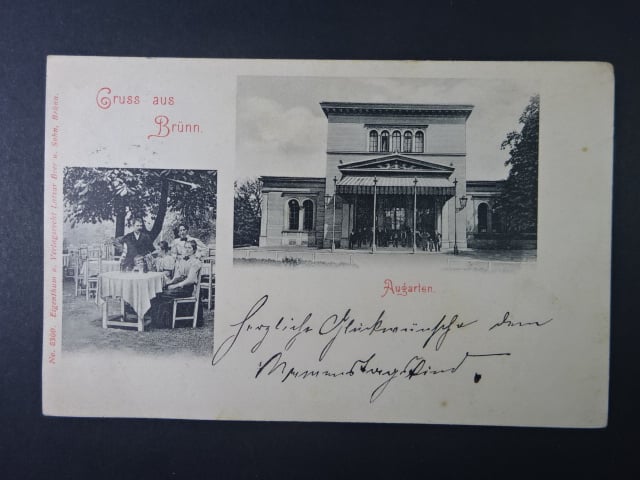 Gruss aus
Brünn.
Augarten.
Herzliche Glückwünsche dem
Namenstagskind.
No. 5300. Eigenthum u. Verlagsrecht Lazar Beer u. Sohn, Brünn.